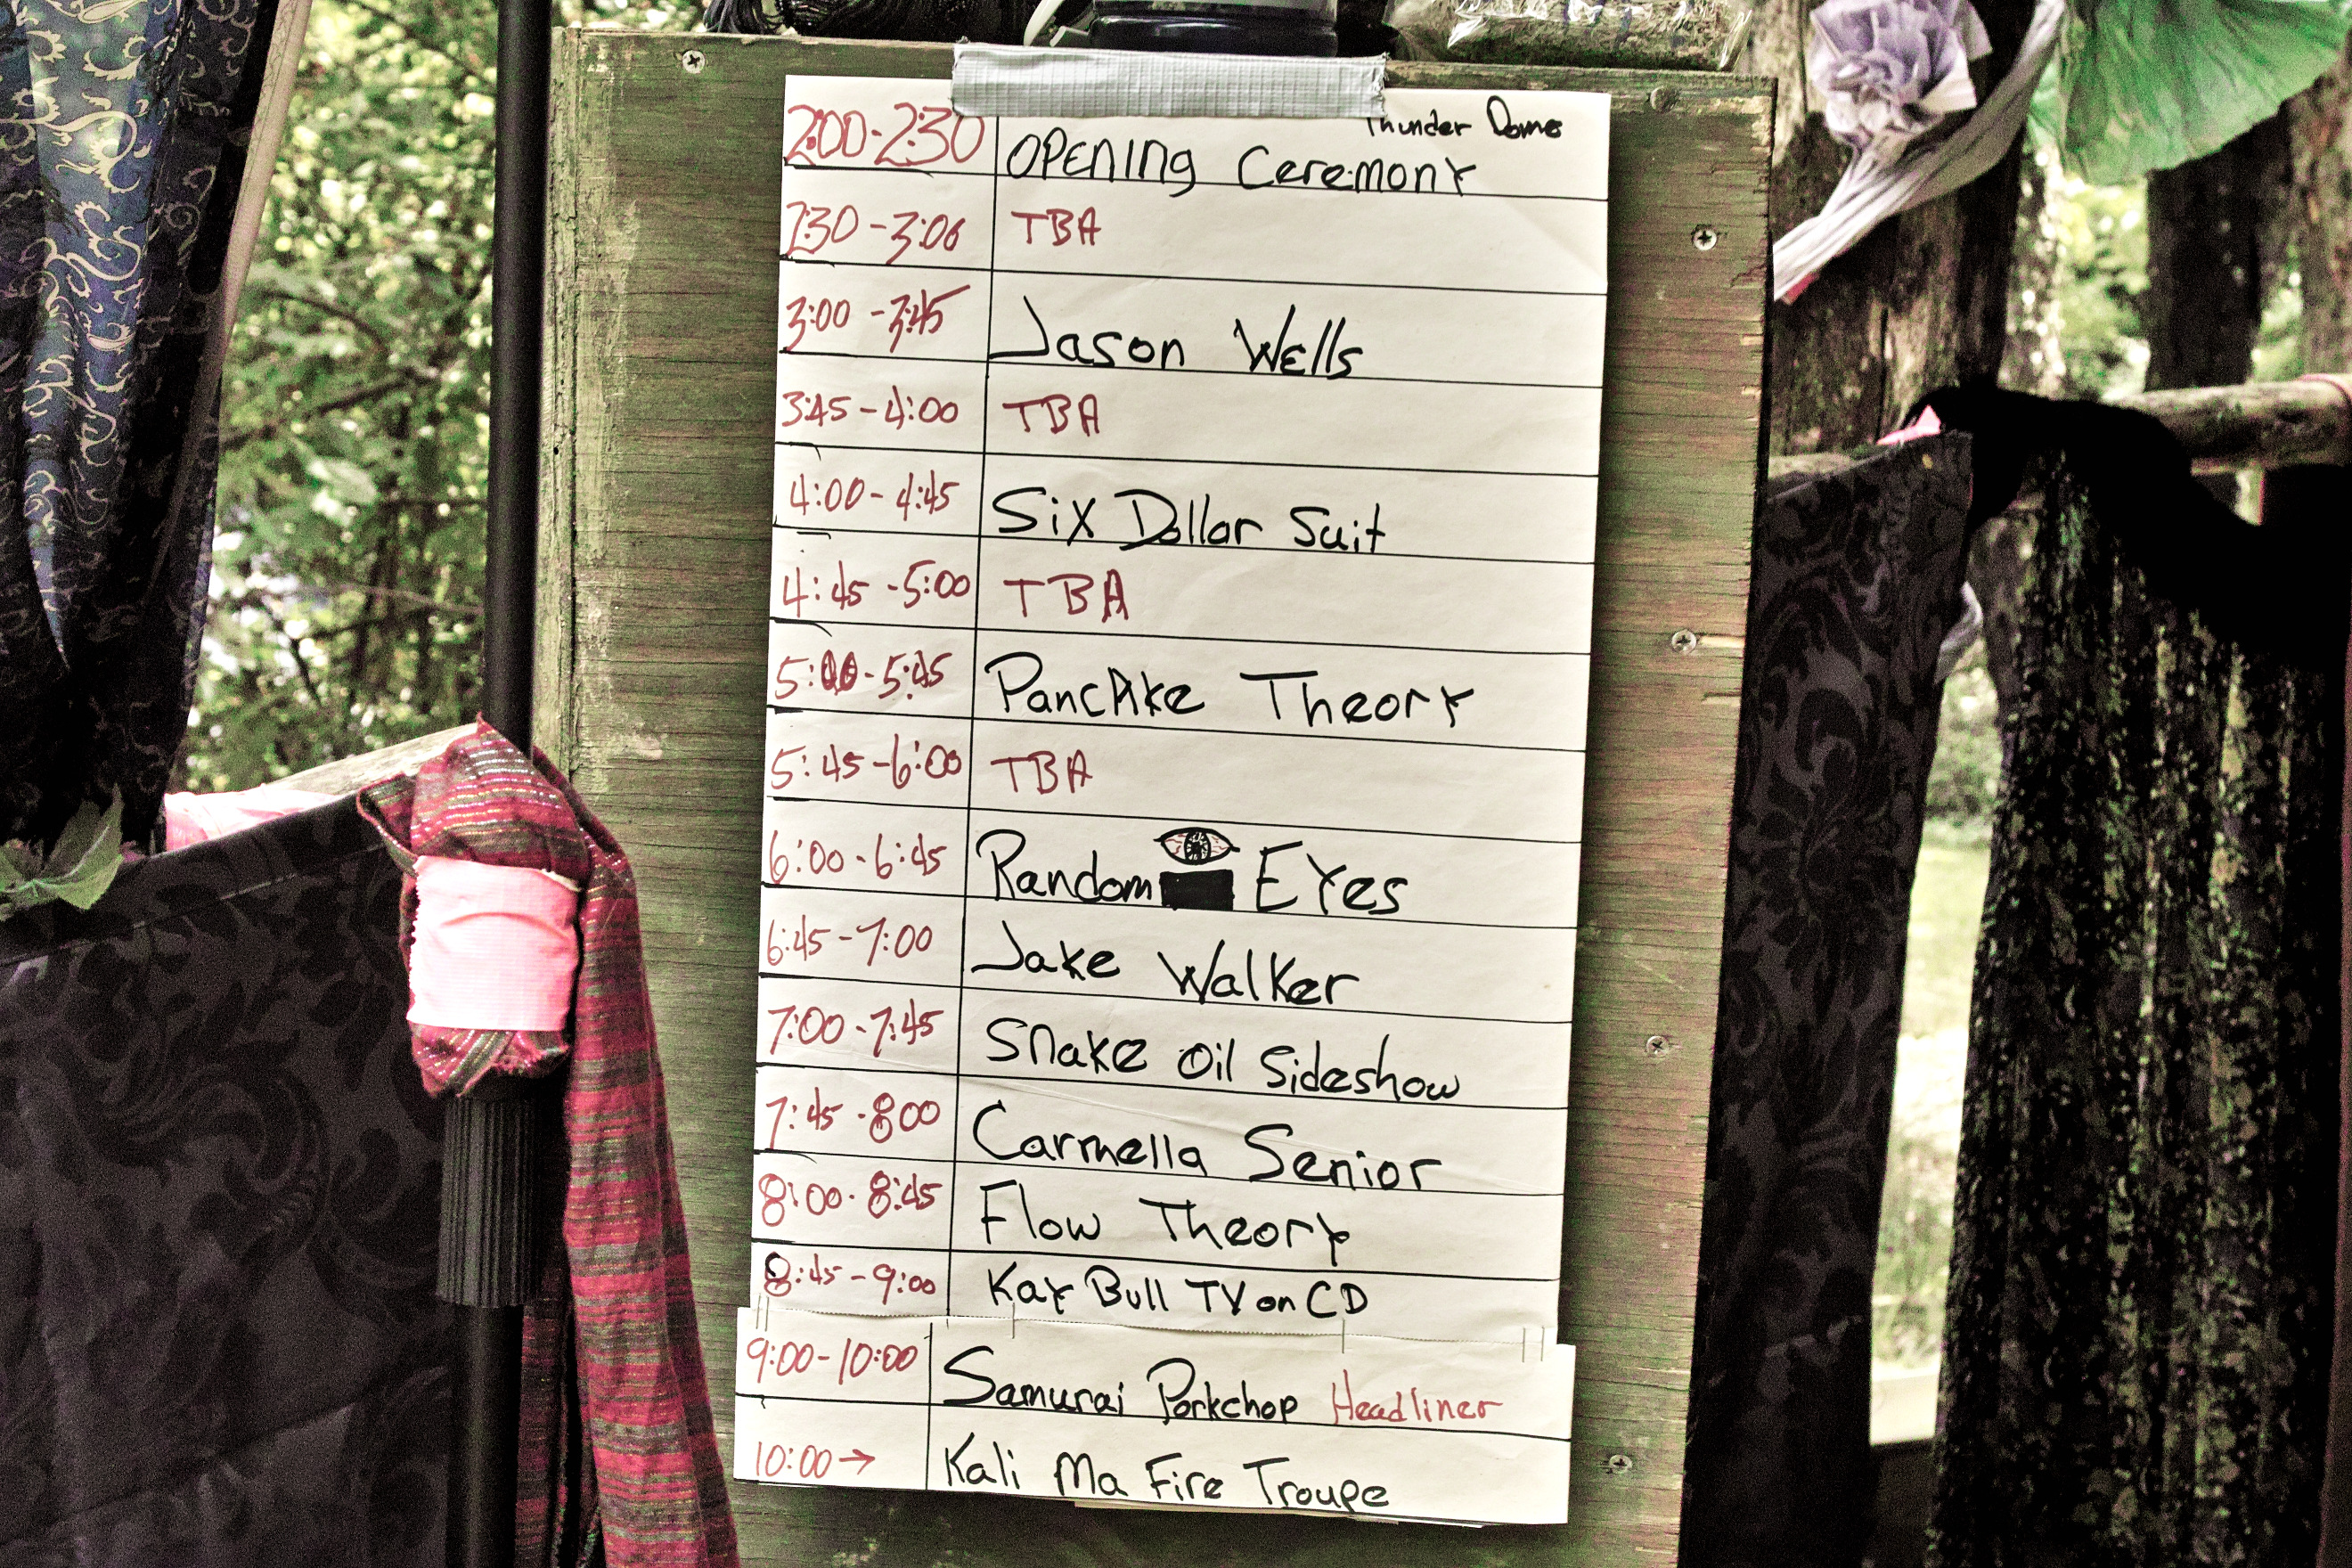 Thunder Dome
2:00-2:30 OPENING Ceremony
2:30-3:00 TBA
3:00-3:45 Jason Wells
3:45-4:00 TBA
4:00-4:45 Six Dollar Suit
4:45-5:00 TBA
5:00-5:45 PancAke Theory
5:45-6:00 TBA
6:00-6:45 Random EYes
6:45-7:00 Jake Walker
7:00-7:45 Snake Oil Sideshow
7:45-8:00 Carmella Senior
8:00-8:45 Flow Theory
8:45-9:00 Kay Bull TV on CD
9:00-10:00 Samurai Porkchop Headliner
10:00→ Kali Ma Fire Troupe